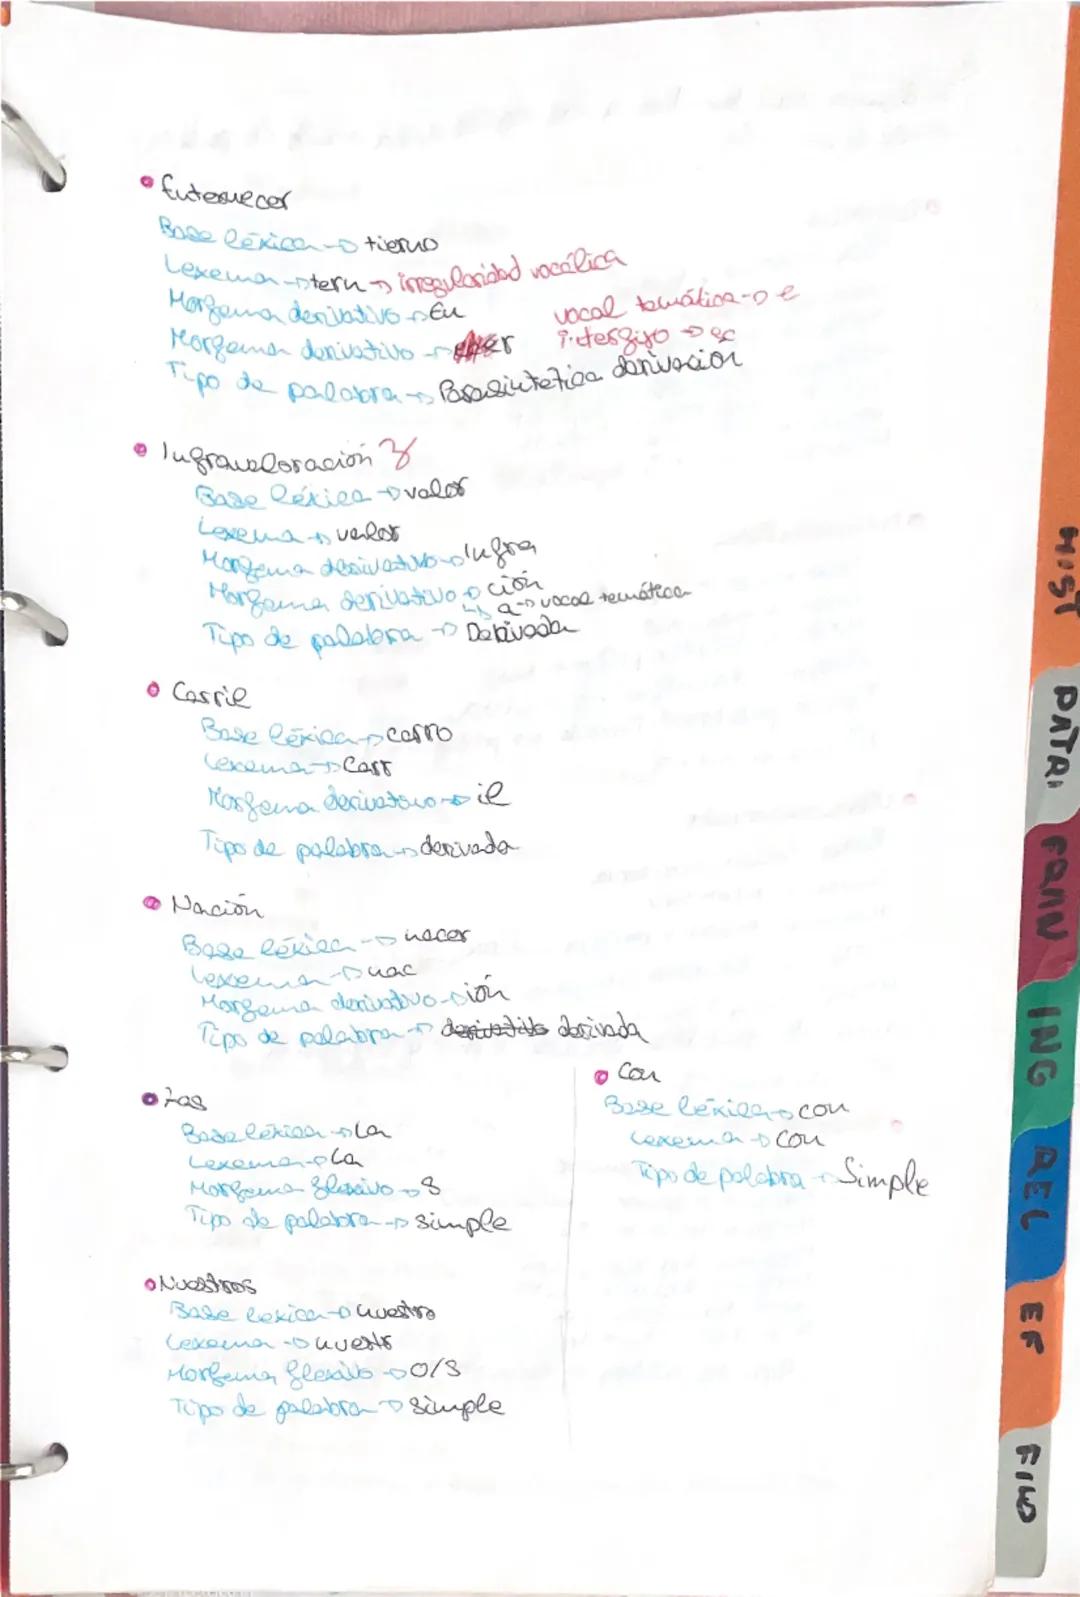 • Enternecer
Base léxica → tierno
Lexema → tern → irregularidad vocálica
Morfema derivativo → En
vocal temática → e
Morfema derivativo → er
interfijo → ec
Tipo de palabra → Parasintética derivación
• Infravaloración
Base léxica → valor
Lexema → valor
Morfema derivativo → Infra
Morfema derivativo → ción
↳ a → vocal temática
Tipo de palabra → Derivada
• Carril
Base léxica → carro
Lexema → Carr
Morfema derivativo → il
Tipo de palabra → derivada
• Nación
Base léxica → nacer
Lexema → nac
Morfema derivativo → ión
Tipo de palabra → derivativo derivada
• Las
Base léxica → La
Lexema → La
Morfema flexivo → S
Tipo de palabra → simple
• Con
Base léxica → con
Lexema → con
Tipo de palabra → Simple
• Nuestros
Base léxica → nuestro
Lexema → nuestr
Morfema flexivo → O/S
Tipo de palabra → simple
HIST
PATRI
FRAN
ING
REL
EF